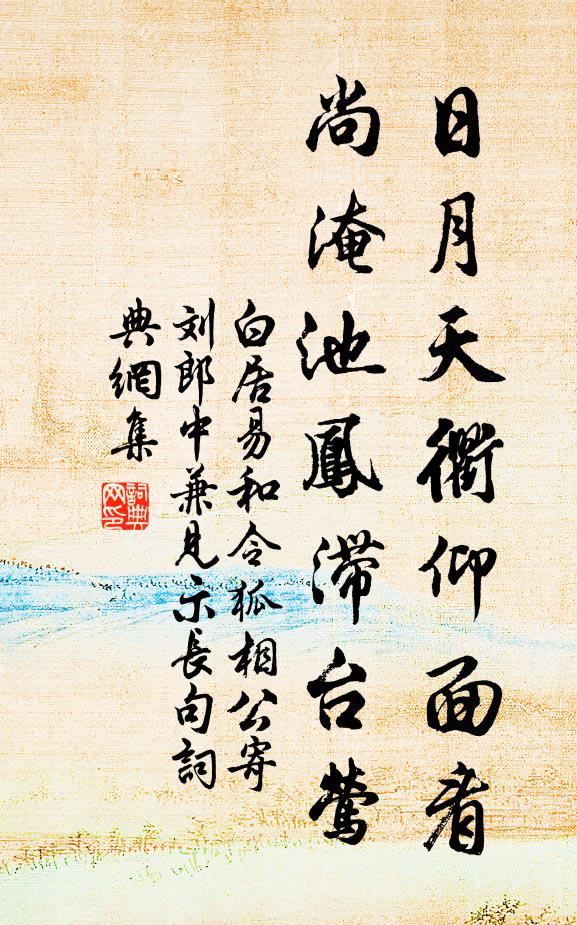 日月天衢仰面看
尚淹池鳳滞台鶯
白居易和令狐相公寄
刘郎中兼見示長句詞
典網集
詞典网印